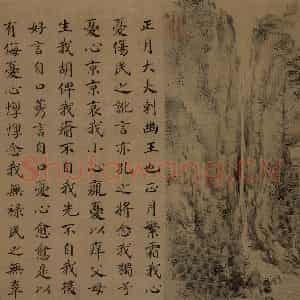 正月大夫刺幽王也正月繁霜我心
憂傷民之訛言亦孔之將念我獨兮
憂心京京哀我小心癙憂以痒父母
生我胡俾我瘉不自我先不自我後
好言自口莠言自口憂心愈愈是以
有侮憂心惸惸念我無祿民之無辜
Shufawang.cn